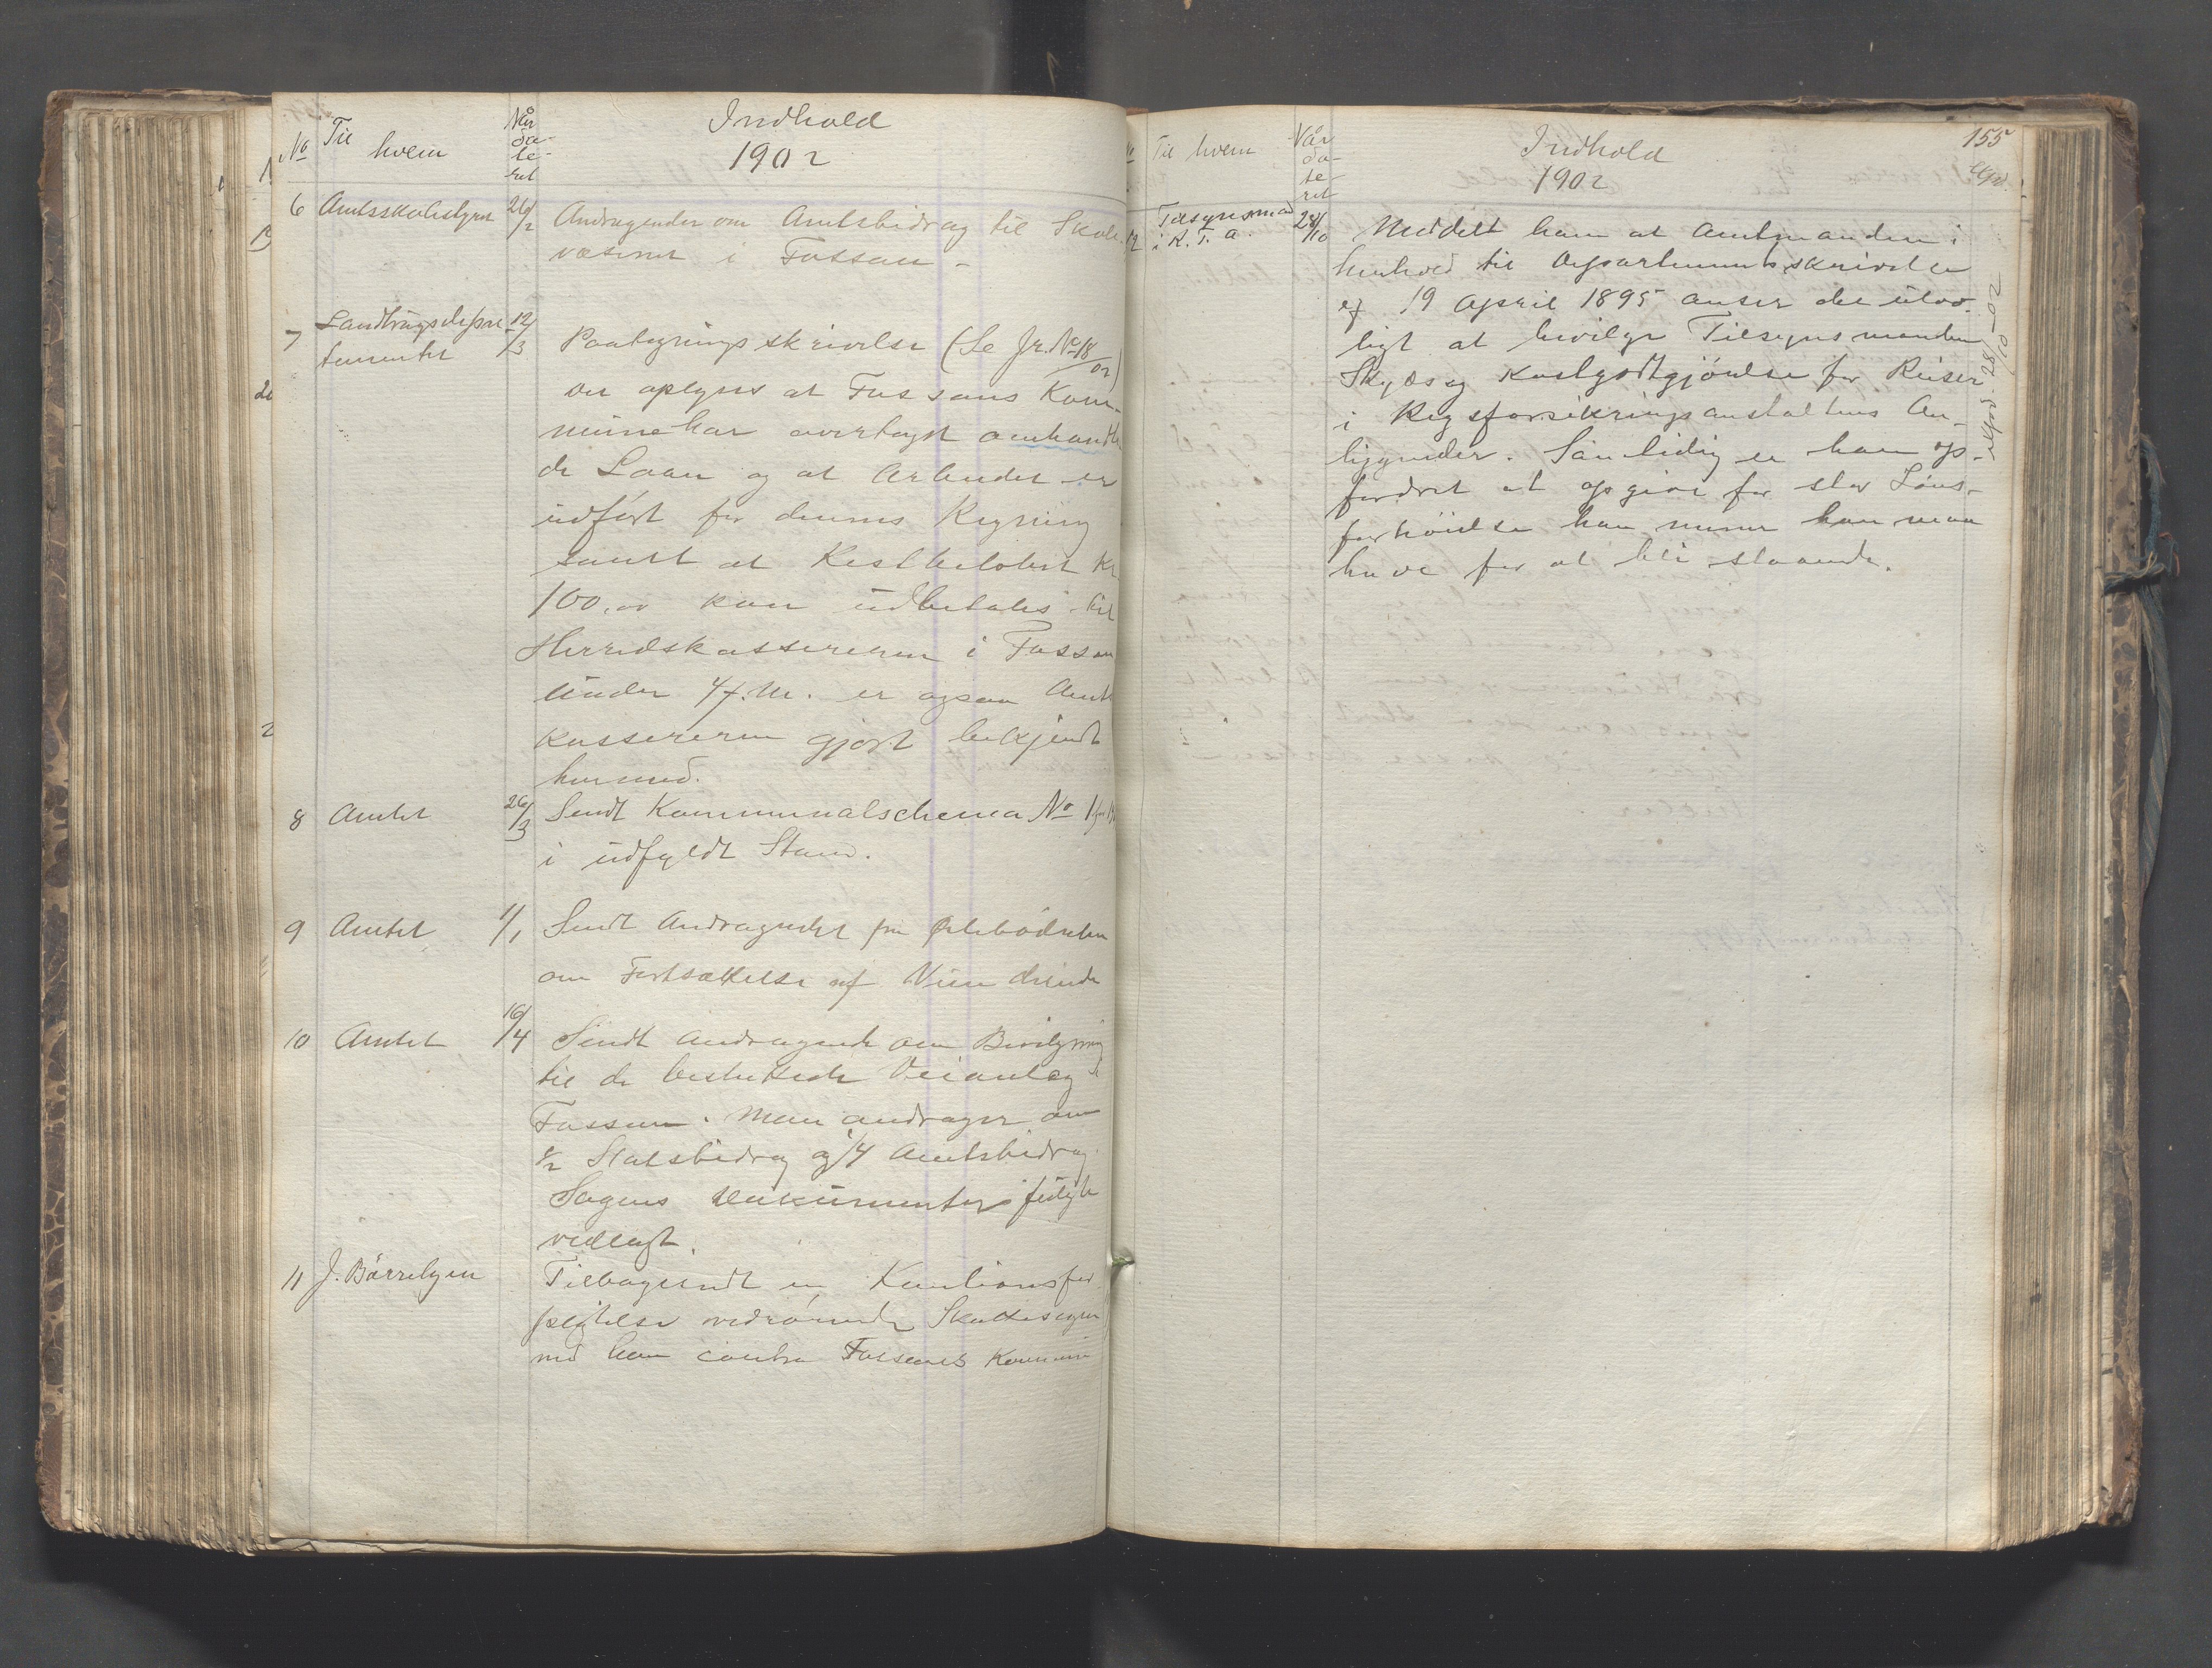 No Til hvem Når da- te- ret Indhold
1902
6 Amtsskolestyret 26/2 Andragender om Amtsbidrag til Skole-
væsenet i Fossan -
7 Landbrugsdepar- 12/3
tementet
Paategningsskrivelse (Se Jr. No 18/02)
der oplyses at Fossans Kom-
mune har overtaget omhandle
de Laan og at Arbeidet er
udført for dennes Regning
samt at Restbeløbet Kr
100,00 kan udbetales til
Herredskassereren i Fossan
Under 4/f.M. er ogsaa Amts
kassereren gjort bekjendt
hermed.
8 Amtet 26/3 Sendt Kommunalschema No 1
i udfyldt Stand.
9 Amtet 1/1 Sendt Andragendet fra
om Fortsættelse af Veien
10 Amtet 16/4 Sendt Andragende om Bevilgning
til de besluttede Veianlæg i
Fossan. Man andrager om
1/2 Statsbidrag og 1/4 Amtsbidrag.
Sagens Dokumenter fulgte
vedlagt.
11 J. Børrelyen Tilbagesendt en Kautionsfor
pligtelse vedrørende Skattesagen
med ham contra Fossans Kommune
155
No Til hvem Når da- te- ret Indhold
1902
12 Tilsynsmand 28/10 Meddelt ham at Amtmanden i
i R. F. A.
henhold til Departementsskrivelse
af 19 April 1895 anser det ulov-
ligt at bevilge Tilsynsmanden
Skyds og Kostgodtgjørelse for Reiser
i Rigsforsikringsanstaltens An-
liggender. Samtidig er han op-
fordret at opgive for stor Løns-
forhøielse han mener han maa
have for at bli staaende.
afgj. 28/10-02